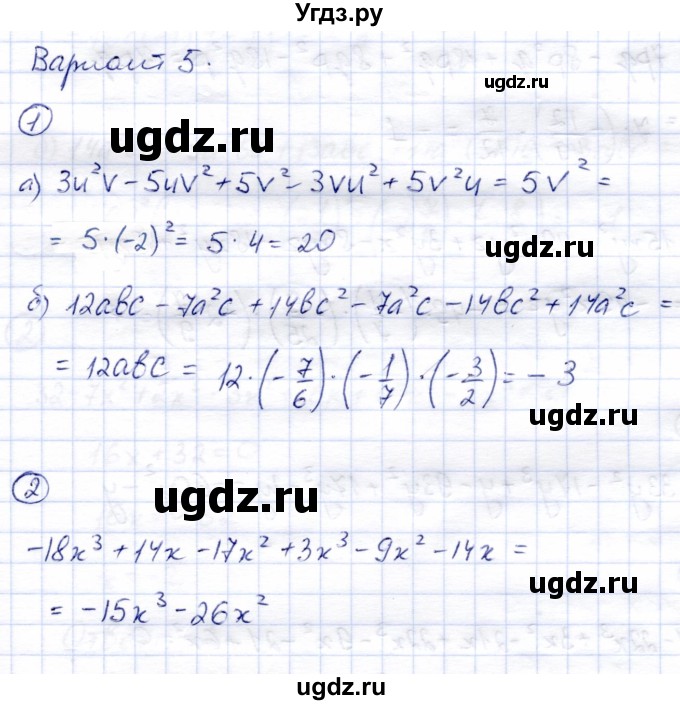 Угдз.ру
Вариант 5.
ugdz.ru
1
ugdz.ru
а) 3u²v - 5uv² + 5v² - 3vu² + 5v²u = 5v² =
= 5·(-2)² = 5·4 = 20
ugdz.ru
б) 12abc - 7a²c + 14bc² - 7a²c - 14bc² + 14a²c =
= 12abc = 12·(-7/6)·(-1/7)·(-3/2) = -3
ugdz.ru
2
ugdz.ru
-18x³ + 14x - 17x² + 3x³ - 9x² - 14x =
ugdz.ru
= -15x³ - 26x²
ugdz.ru